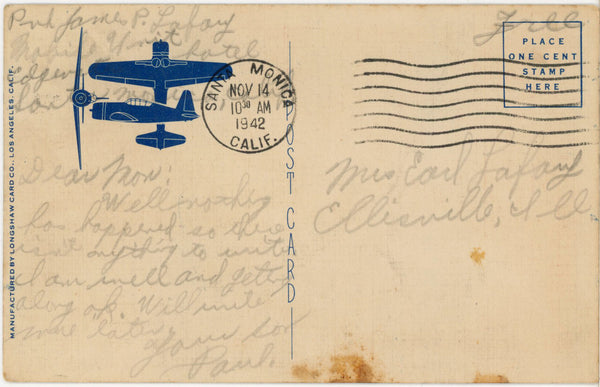 Pvt James P. Lafary
Mobile Unit
Edgewater Hotel
Santa Monica
SANTA MONICA
NOV 14
10 30 AM
1942
CALIF.
Free
PLACE
ONE CENT
STAMP
HERE
MANUFACTURED BY LONGSHAW CARD CO., LOS ANGELES, CALIF.
POST CARD
Dear Mom:
Well nothing
has happened so there
isn't anything to write
I am well and getting
along ok. Will write
more later.
Your son
Paul.
Mrs Earl Lafary
Ellisville, Ill